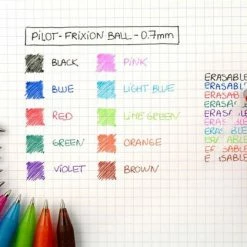 PILOT-FRIXION BALL-0.7mm
BLACK PINK
BLUE LIGHT BLUE
RED LIME GREEN
GREEN ORANGE
VIOLET BROWN
ERASABLE
ERASABL
ERASABLE
ERASA
ERA ABLE
ERA ABLE
ERASABLE
E ASABLE
E SABLE
E SABLE